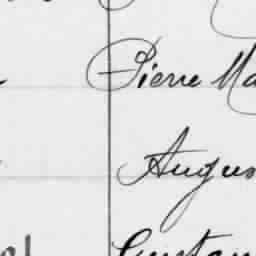 Pierre Ma
Augus
Constan